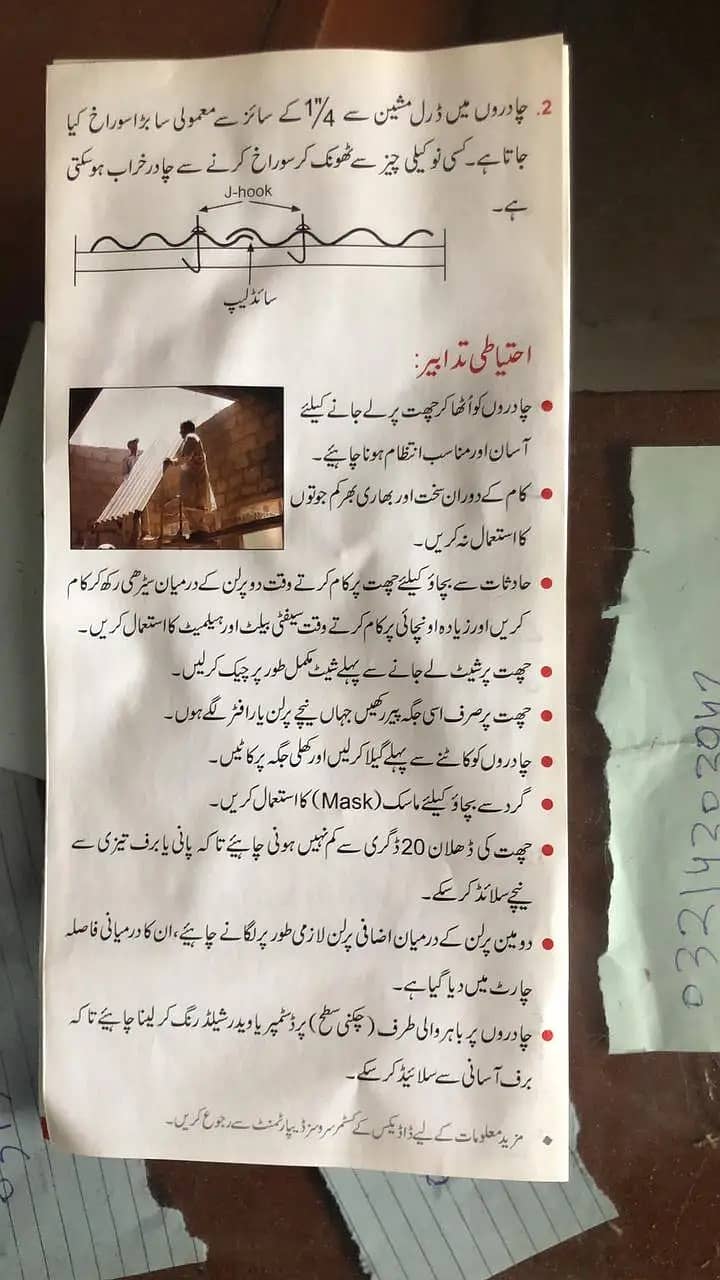 2. چادروں میں ڈرل مشین سے 1"/4 کے سائز سے معمولی سا بڑا سوراخ کیا
جاتا ہے۔ کسی نوکیلی چیز سے ٹھونک کر سوراخ کرنے سے چادر خراب ہوسکتی
ہے۔
J-hook
سائڈ لیپ
احتیاطی تدابیر:
● چادروں کو اُٹھا کر چھت پر لے جانے کیلئے
آسان اور مناسب انتظام ہونا چاہیئے۔
● کام کے دوران سخت اور بھاری بھر کم جوتوں
کا استعمال نہ کریں۔
● حادثات سے بچاؤ کیلئے چھت پر کام کرتے وقت دو پرلن کے درمیان سیڑھی رکھ کر کام
کریں اور زیادہ اونچائی پر کام کرتے وقت سیفٹی بیلٹ اور ہیلمیٹ کا استعمال کریں۔
● چھت پر شیٹ لے جانے سے پہلے شیٹ مکمل طور پر چیک کرلیں۔
● چھت پر صرف اسی جگہ پیر رکھیں جہاں نیچے پرلن یا رافٹر لگے ہوں۔
● چادروں کو کاٹنے سے پہلے گیلا کرلیں اور کھلی جگہ پر کاٹیں۔
● گرد سے بچاؤ کیلئے ماسک (Mask) کا استعمال کریں۔
● چھت کی ڈھلان 20 ڈگری سے کم نہیں ہونی چاہیئے تاکہ پانی یا برف تیزی سے
نیچے سلائڈ کر سکے۔
● دو مین پرلن کے درمیان اضافی پرلن لازمی طور پر لگانے چاہیئے، ان کا درمیانی فاصلہ
چارٹ میں دیا گیا ہے۔
● چادروں پر باہر والی طرف (چکنی سطح) پر ڈسٹمپر یا ویدر شیلڈ رنگ کر لینا چاہیئے تاکہ
برف آسانی سے سلائیڈ کر سکے۔
◆ مزید معلومات کے لیے ڈاڈیکس کے کسٹمر سروسز ڈیپارٹمنٹ سے رجوع کریں۔